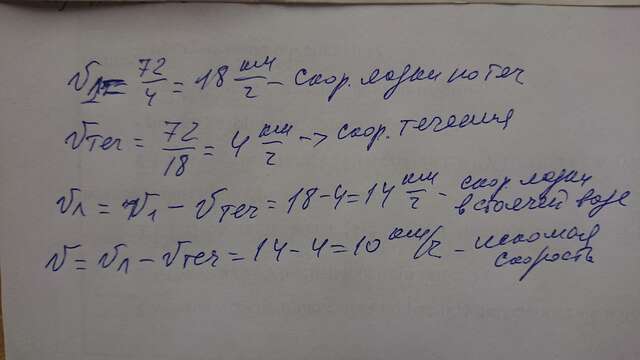 v₁ = 72/4 = 18 км/ч – скор. лодки по теч
vтеч = 72/18 = 4 км/ч –> скор. течения
vл = v₁ – vтеч = 18-4=14 км/ч – скор. лодки в стоячей воде
v = vл – vтеч = 14-4=10 км/ч – искомая скорость